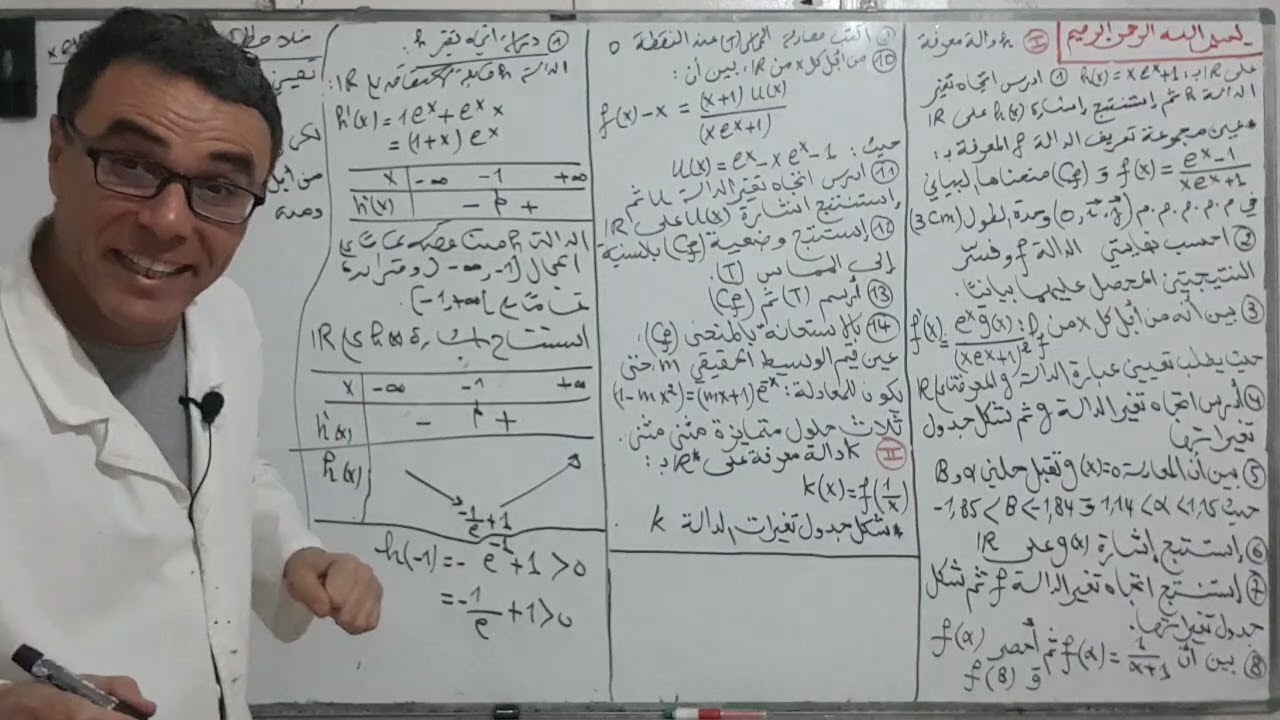 بسم الله الرحمن الرحيم
I h دالة معرفة
على IR بـ: h(x) = x eˣ+1 ① ادرس اتجاه تغير
الدالة h ثم إستنتج إشارة h(x) على IR
* عين مجموعة تعريف الدالة f المعرفة بـ:
f(x) = (eˣ-1)/(xeˣ+1) و (Cf) منحناها البياني
في م.م.م.م (0,i,j) وحدة الطول (3cm)
② احسب نهايتي الدالة f وفسّر
النتيجتين المحصل عليهما بيانيا.
③ بين أنه من أجل كل x من Df: f'(x) = eˣg(x)/(xeˣ+1)²
حيث يطلب تعيين عبارة الدالة g المعرفة على IR
④ أدرس اتجاه تغير الدالة g ثم شكل جدول
تغيراتها
⑤ بين أن المعادلة g(x)=0 تقبل حلين α و B
حيث 1,14<α<1,15 و -1,85<B<-1,84
⑥ إستنتج إشارة g(x) على IR
⑦ إستنتج اتجاه تغير الدالة f ثم شكل
جدول تغيراتها.
⑧ بين أن f(α) = 1/(α+1) ثم أحصر f(α)
و f(B)
⑨ اكتب معادلة المماس (T) عند النقطة 0
⑩ من أجل كل x من IR، بين أن:
f(x)-x = (x+1) u(x)/(xeˣ+1)
حيث: u(x) = eˣ-xeˣ-1
⑪ ادرس اتجاه تغير الدالة u ثم
إستنتج اشارة u(x) على IR
⑫ إستنتج وضعية (Cf) بالنسبة
إلى المماس (T).
⑬ أرسم (T) ثم (Cf)
⑭ بالاستعانة بالمنحنى (Cf)،
عين قيم الوسيط الحقيقي m حتى
تكون للمعادلة: (1-mx²)=(mx+1)e⁻ˣ
ثلاث حلول متمايزة مثنى مثنى.
II k دالة معرفة على IR* بـ:
k(x) = f(1/x)
* شكل جدول تغيرات الدالة k.
① دراسة اتجاه تغير h:
الدالة h قابلة للاشتقاق على IR:
h'(x) = 1eˣ+eˣx
= (1+x) eˣ
x -∞ -1 +∞
h'(x) - 0 +
الدالة h متناقصة تماما على
المجال ]-∞,-1] ومتزايدة
تماما على [-1,+∞[.
استنتاج إشارة h(x) على IR
x -∞ -1 +∞
h'(x) - 0 +
h(x)
-1/e+1
h(-1) = -e⁻¹+1>0
= -1/e+1>0